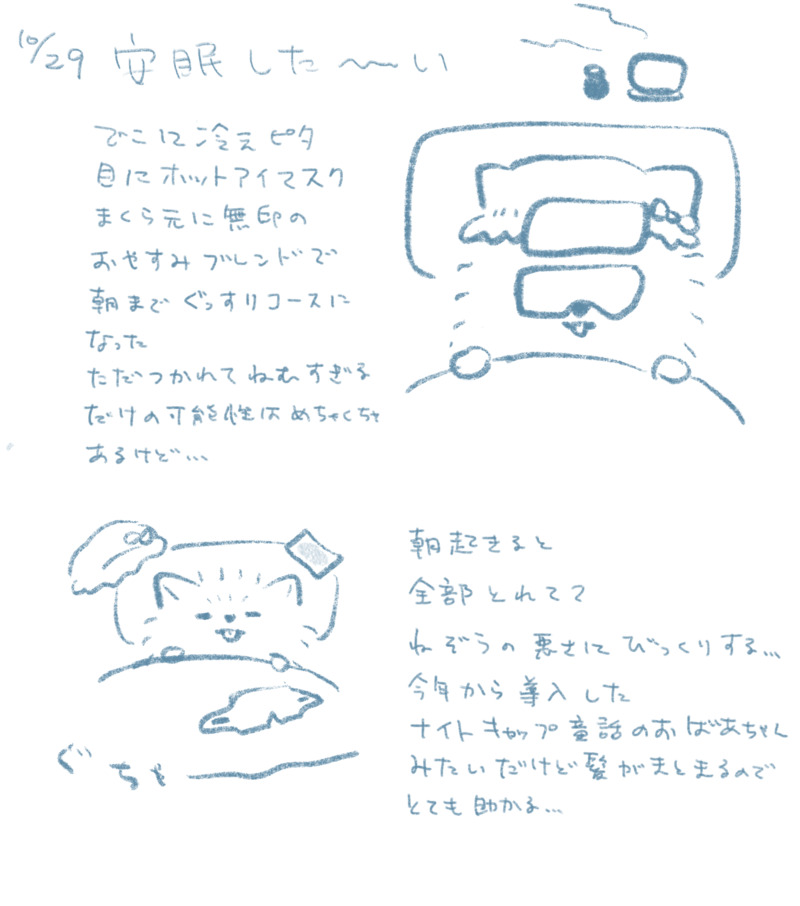 10/29 安眠した〜い
でこに冷えピタ
目にホットアイマスク
まくら元に無印の
おやすみブレンドで
朝までぐっすりコースに
なった
ただつかれてねむすぎる
だけの可能性はめちゃくちゃ
あるけど…
朝起きると
全部とれてて
ねぞうの悪さにびっくりする…
今年から導入した
ナイトキャップ童話のおばあちゃん
みたいだけど髪がまとまるので
とても助かる…
ぐちゃ